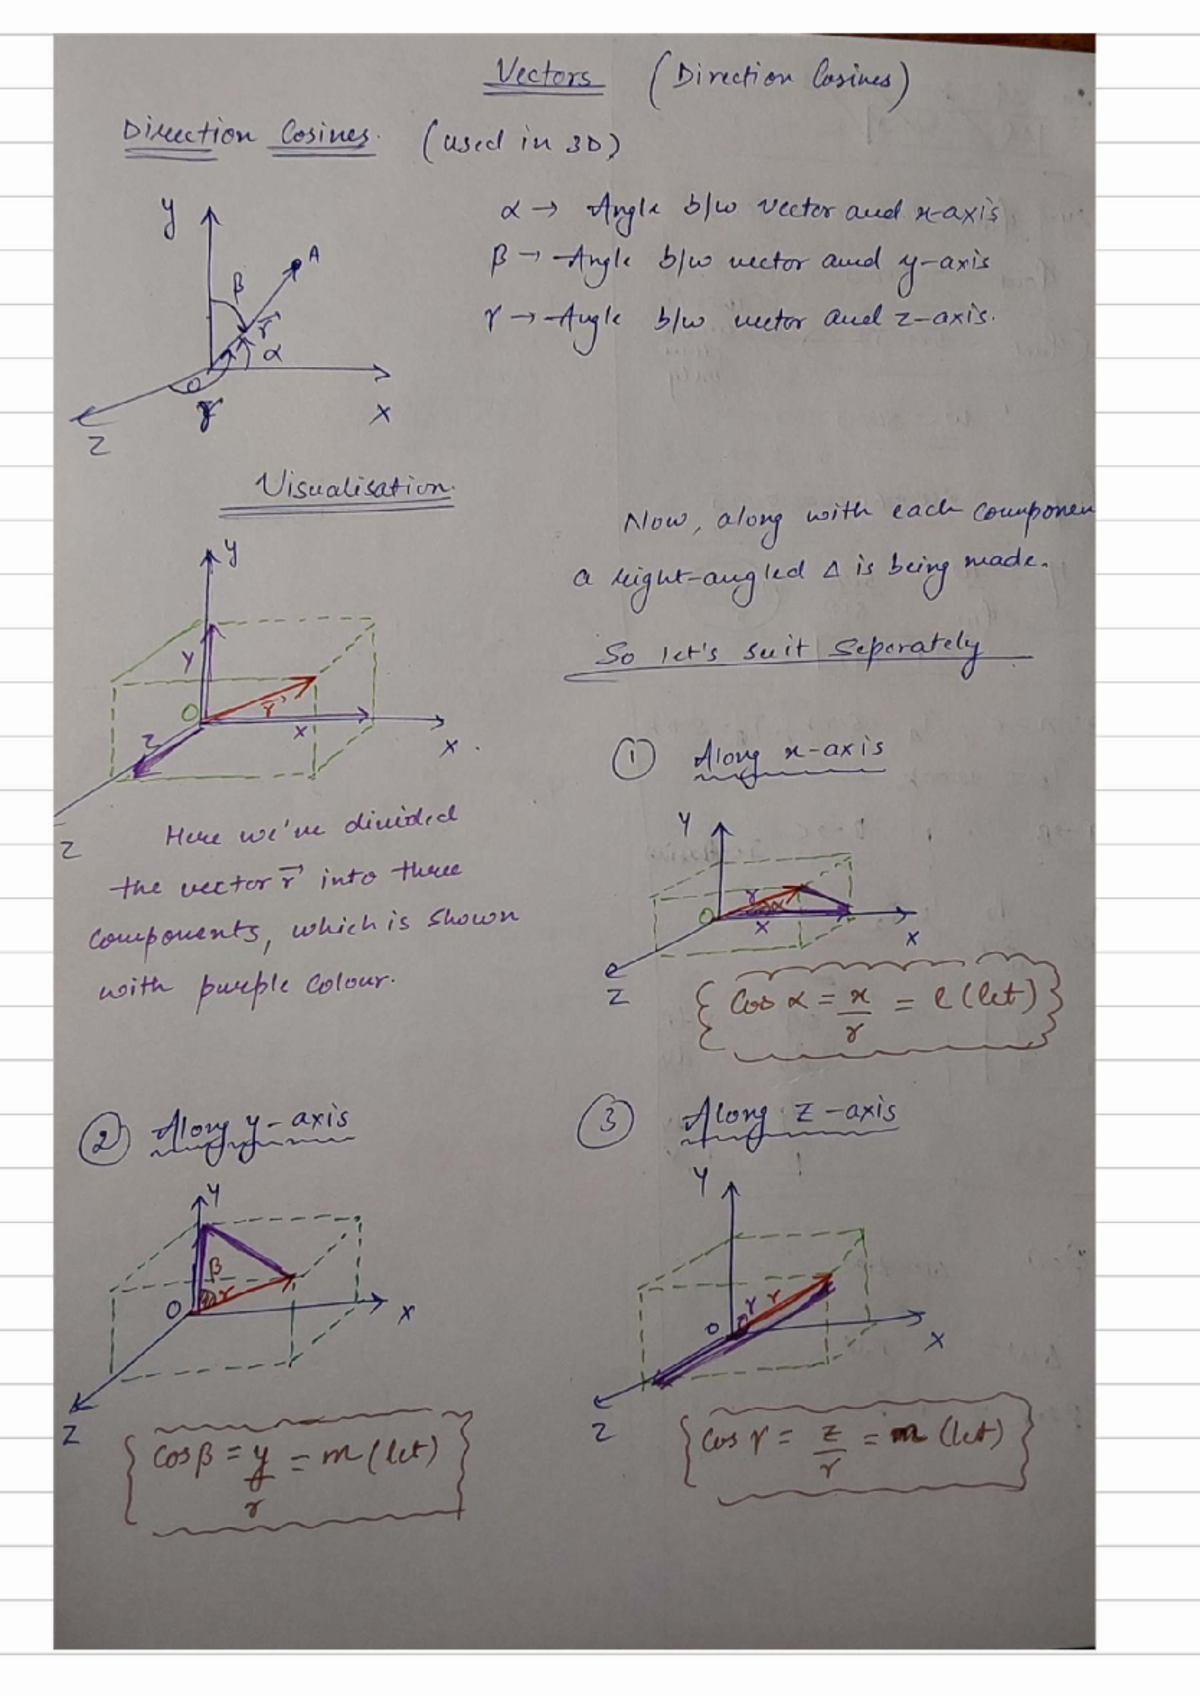 Vectors (Direction Cosines)
Direction Cosines. (used in 3D)
α → Angle b/w vector and x-axis
β → Angle b/w vector and y-axis
γ → Angle b/w vector and z-axis.
y
A
β
r⃗
α
O
γ
X
Z
Visualisation.
Now, along with each componen
a right-angled Δ is being made.
So let's suit Seperately
y
Y
O
r⃗
X
Z
X.
Z
Here we've divided
the vector r⃗ into three
components, which is shown
with purple colour.
① Along x-axis
Y
r
α
O
X
X
Z
Cos α = x/r = l (let)
② Along y-axis
Y
β
r
O
X
Z
Cos β = y/r = m (let)
③ Along Z-axis
Y
γ
r
O
X
Z
Cos γ = z/r = n (let)